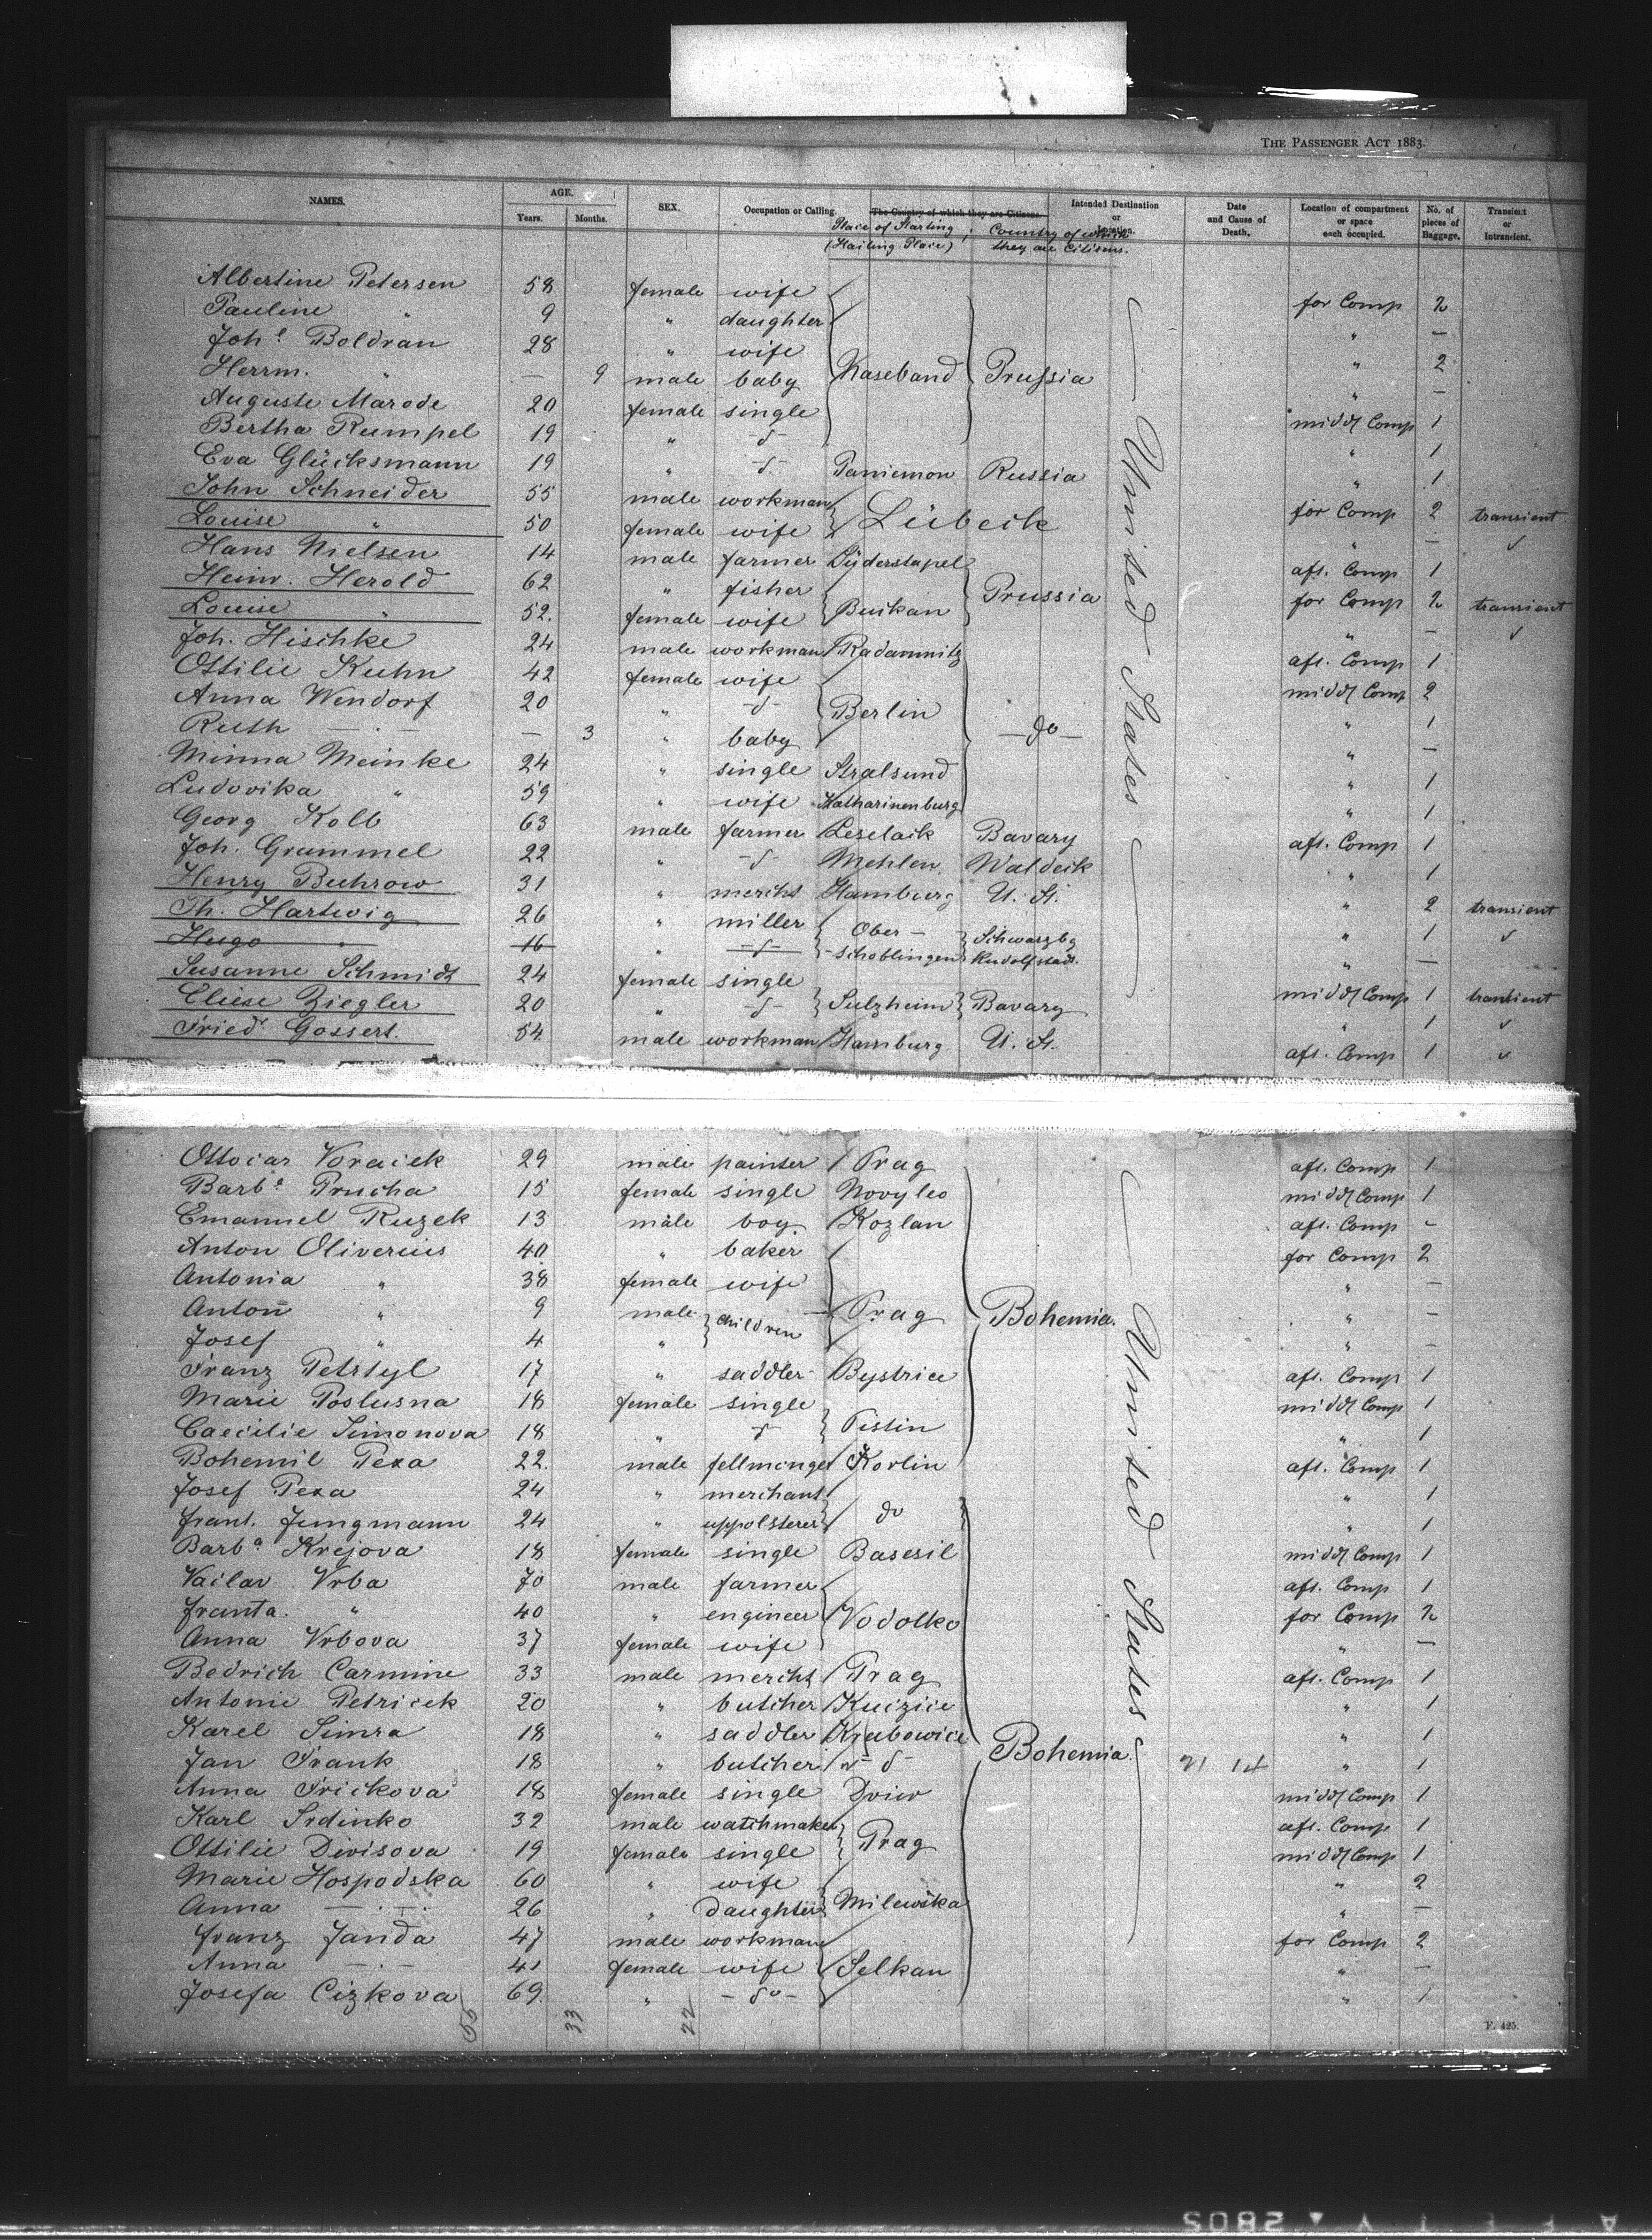 THE PASSENGER ACT 1883.
NAMES. AGE. Years. Months. SEX. Occupation or Calling. The Country of which they are Citizens. Intended Destination or Location. Date and Cause of Death. Location of compartment or space each occupied. No. of pieces of Baggage. Transient or Intransient.
Place of Starting, Country of which
(Hailing Place) they are Citizens.
Albertine Petersen 58 female wife for Comp 2
Pauline " 9 " daughter " —
Joh.e Boldran 28 " wife " 2
Herrm. " — 9 male baby Kaseband Prussia " —
Auguste Marode 20 female single middl Comp 1
Bertha Rumpel 19 " -d- " 1
Eva Glücksmann 19 " -d- Paniemon Russia " 1
John Schneider 55 male workman Lübeck for Comp 2 transient
Louise " 50 female wife " — "
Hans Nielsen 14 male farmer Süderstapel aft. Comp 1
Heinr. Herold 62 " fisher Prussia for Comp 2 transient
Louise " 52. female wife Buikan " — "
Joh. Hischke 24 male workman Radamnitz aft. Comp 1
Ottilie Kuhn 42 female wife middl Comp 2
Anna Wendorf 20 " -d- Berlin " 1
Ruth — . — — 3 " baby -do- " —
Minna Meinke 24 " single Stralsund " 1
Ludovika " 59 " wife Katharinenburg " 1
Georg Kolb 63 male farmer Leselaik Bavary aft. Comp 1
Joh. Grammel 22 " -d- Mehlen Waldeck " 1
Henry Buhrow 31 " mercht Hamburg U. St. " 2 transient
Th. Hartwig 26 " miller Ober- Schwarzbg " 1 "
Hugo " 16 " -d- -schoblingen Rudolfstadt. " —
Susanne Schmidt 24 female single middl Comp 1 transient
Eliese Ziegler 20 " -d- Sulzheim Bavary " 1 "
Fried Gossert. 54. male workman Hamburg U. St. aft. Comp 1 "
United States
Ottocar Voracek 29 male painter Prag aft. Comp 1
Barb.a Prucha 15 female single Novyleo middl Comp 1
Emanuel Ruzek 13 male boy Kozlan aft. Comp -
Anton Oliverius 40 " baker for Comp 2
Antonia " 38 female wife " —
Anton " 9 male children Prag Bohemia. " —
Josef " 4 " " —
Franz Petrtyl 17 " saddler Bystrice aft. Comp 1
Marie Poslusna 18 female single middl Comp 1
Caecilie Simonova 18 " -d- Pistin " 1
Bohemil Pexa 22. male fellmonger Korlin aft. Comp 1
Josef Pexa 24 " merchant " 1
frant. Jungmann 24 " uppolsterer do " 1
Barb.a Krejova 18 female single Basesil middl Comp 1
Vailav Vrba 70 male farmer aft. Comp 1
franta. " 40 " engineer Vodolko for Comp 2
Anna Vrbova 37 female wife " —
Bedrich Carmine 33 male mercht Prag aft. Comp 1
Antonie Petricek 20 " butcher Kuczice " 1
Karel Simra 18 " saddler Krubowice " 1
Jan Frank 18 " butcher -d- Bohemia. 21 14 " 1
Anna Frickova 18 female single Dvier middl Comp 1
Karl Srdinko 32 male watchmaker aft. Comp 1
Ottilie Divisova 19 female single Prag middl Comp 1
Marie Hospodska 60 " wife " 2
Anna — . — 26 " daughter Milewska " —
franz Janda 47 male workman for Comp 2
Anna — . — 41 female wife Selkan " —
Josefa Cizkova 69. " -do- " 1
United States
55 33 22
F. 425.